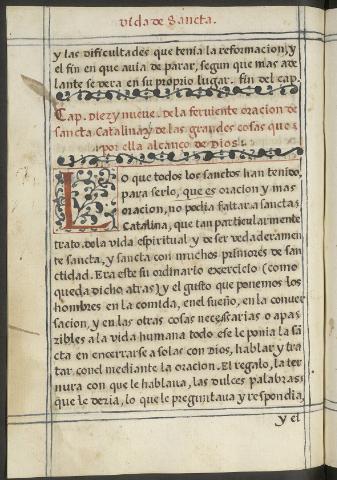 vida de Sancta.
y las dificultades que tenia la reformacion, y
el fin en que auia de parar, segun que mas ade
lante se vera en su proprio lugar. fin del cap.
Cap. diez y nueue. de la feruiente oracion de
sancta Catalina y de las grandes cosas que
por ella alcanço de Dios.
Lo que todos los sanctos han tenido,
para serlo, que es oracion y mas
oracion, no podia faltar a sancta
Catalina, que tan particularmente
trato. de la vida espiritual y de ser vedaderamen
te sancta, y sancta con muchos primores de san
ctidad. Era este su ordinario exercicio (como
queda dicho atras) y el gusto que ponemos los
hombres en la comida, en el sueño, en la conuer
sacion, y en las otras cosas necessarias o apa
zibles a la vida humana todo ese le ponia la sã
cta en encerrarse a solas con Dios, hablar y tra
tar con el mediante la oracion. El regalo, la ter
nura con que le hablaua, las dulces palabras
que le dezia, lo que le preguntaua y respondia,
y el